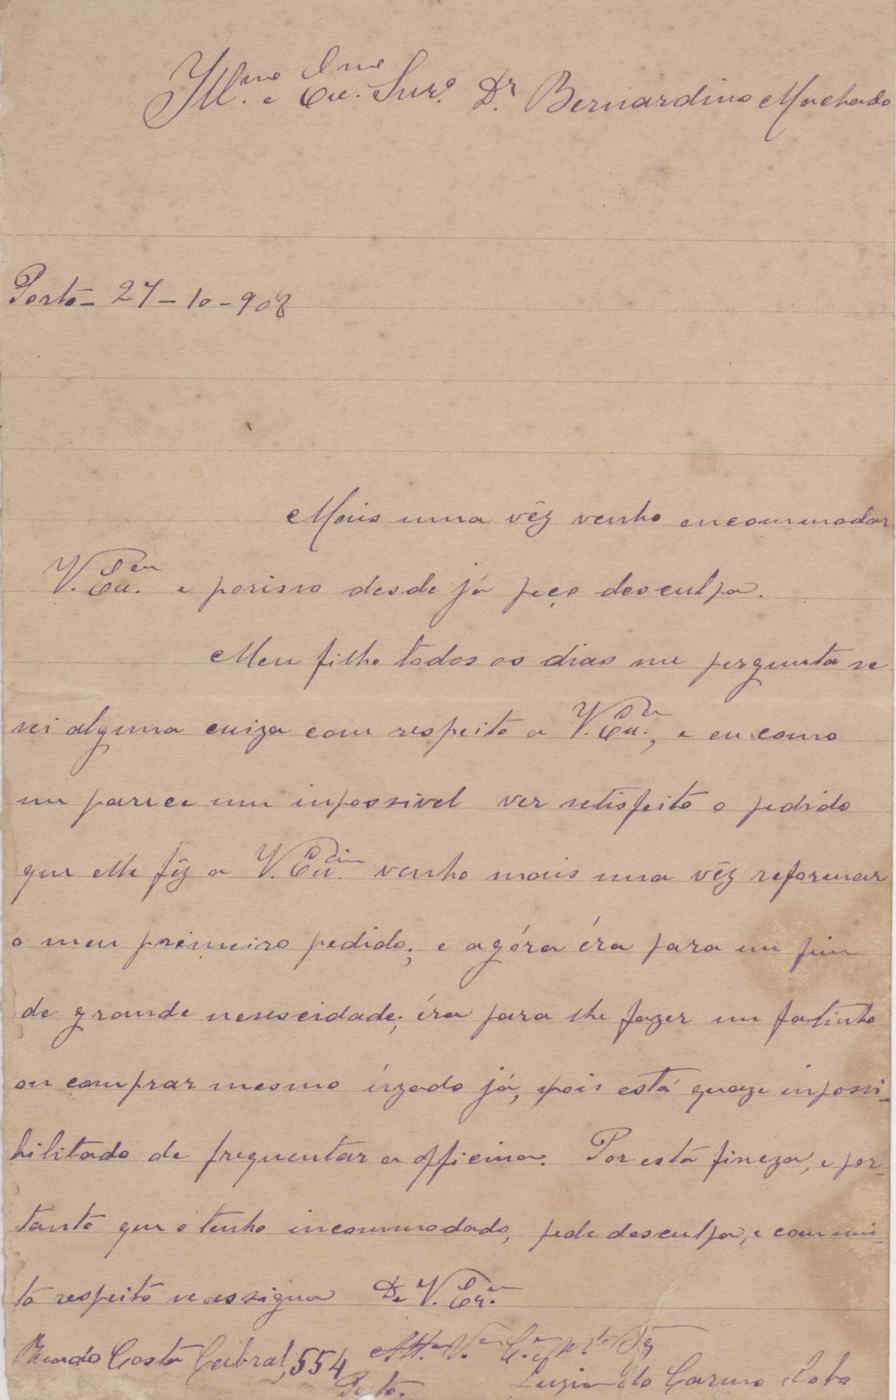 Ill.mo e Exmo. Snr. Dr. Bernardino Machado
Porto - 27 - 10 - 908
Mais uma vêz venho encommodar
V. Exa. e porisso desde já peço desculpa.
Meu filho todos os dias me pergunta se
sei alguma cuiza com respeito a V. Excia., e eu como
me parece um inpossivel ver setisfeito o pedido
que elle fêz a V. Excia. venho mais uma vêz reformar
o meu primeiro pedido; e agóra éra para um fim
de grande nesescidade; éra para lhe fazer um fatinho
ou comprar mesmo úzado já, pois está quaze inpossi-
bilitado de frequentar a officina. Por está fineza, e por-
tanto que o tenho incommodado, pede desculpa, e com mui-
to respeito se assigna De V. Exa.
Costa Cabral, 554 Att.a V.
Porto. Luzia do Carmo